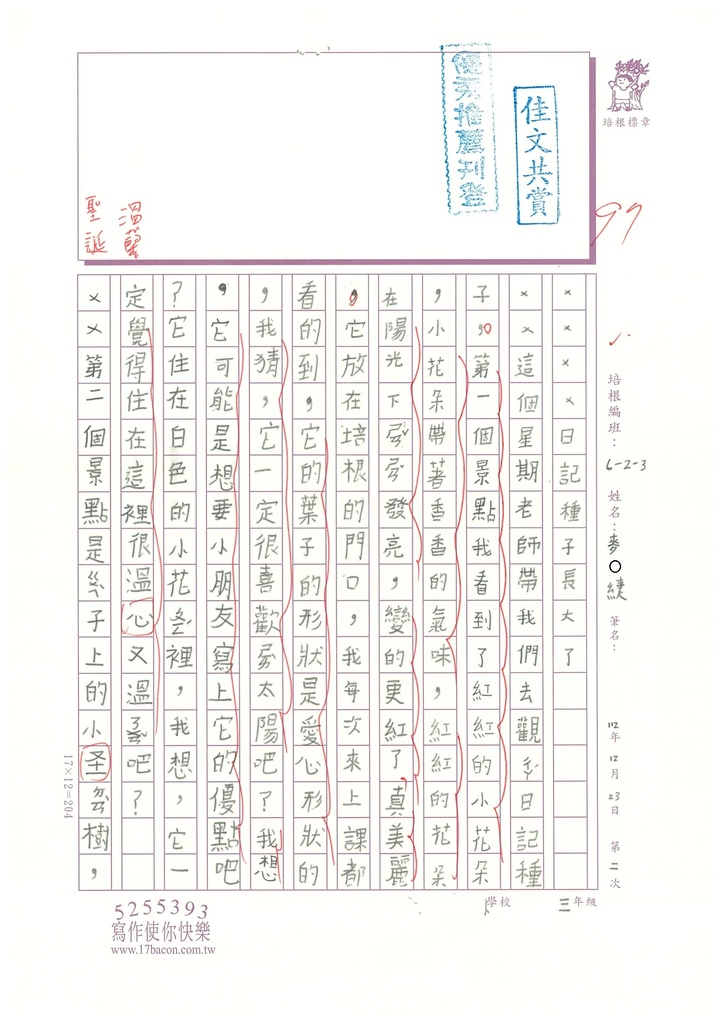 培根標章
佳文共賞
優秀推薦刊登
97
溫馨
聖誕
培根編班：6-2-3 姓名：麥○緁 筆名：
112年12月23日 第二次
三年級
學校
××××日記種子長大了
××這個星期老師帶我們去觀ㄔㄚˊ日記種
子。第一個景點我看到了紅紅的小花朵
，小花朵帶著香香的氣味，紅紅的花朵
在陽光下ㄕㄢˇㄕㄢˇ發亮，變的更紅了真美麗
，它放在培根的門口，我每次來上課都
看的到，它的葉子的形狀是愛心形狀的
，我猜，它一定很喜歡ㄕㄞˋ太陽吧？我想
，它可能是想要小朋友寫上它的優點吧
？它住在白色的小花ㄆㄣˊ裡，我想，它一
定覺得住在這裡很溫心又溫ㄋㄨㄢˇ吧？
××第二個景點是ㄓㄨㄛ子上的小圣ㄉㄢˋ樹，
17×12=204
5255393
寫作使你快樂
www.17bacon.com.tw